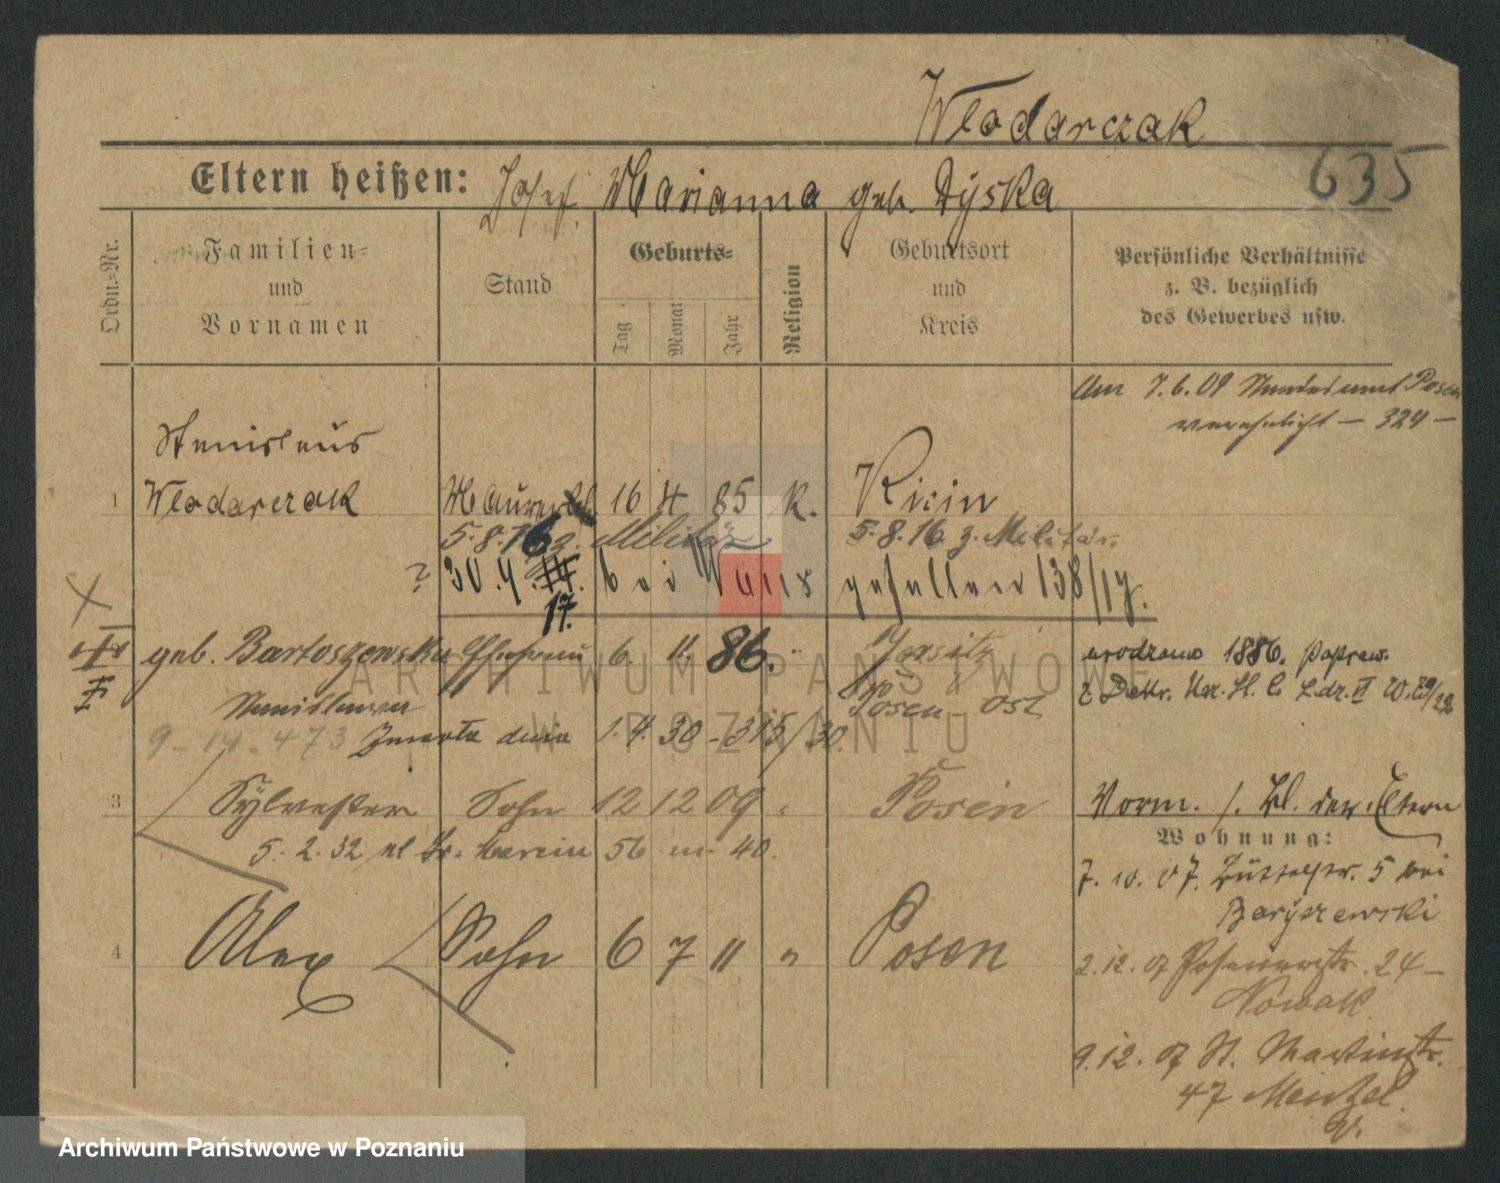 Wlodarczak
635
Eltern heißen: Josef. Marianna geb. Dyska
Ordn.-Nr.
Familien- und Vornamen
Stand
Geburts-
Tag
Monat
Jahr
Religion
Geburtsort und Kreis
Persönliche Verhältnisse
z. B. bezüglich
des Gewerbes usw.
Am 7.6.09 Standesamt Posen
verehelicht – 324 –
Stanislaus
1 Wlodarczak Maurer 16 4 85 k. Ricin
5.8.16 z. Militär 5.8.16 z. Militär.
? 30.4.17. bei gefallen 138/17.
geb. Bartoszewska Ehefrau 6. 11. 86. " Jersitz
Posen Ost
urodzona 1886. popraw.
Stanislawa
9-14-473 Zmarła dnia 1.4.30 - 315/30.
3 Sylvester Sohn 12 12 09 " Posen
Vorm. s. Bl. der Eltern
5.2.32 56 m. 40.
Wohnung:
7.10.07. 5 bei
Baryszewski
4 Alex Sohn 6 7 11 " Posen
2.12.07 Posenerstr. 24 –
Nowak
9.12.07 St. Martinstr.
47 Menzel.
ARCHIWUM PAŃSTWOWE
W POZNANIU
Archiwum Państwowe w Poznaniu